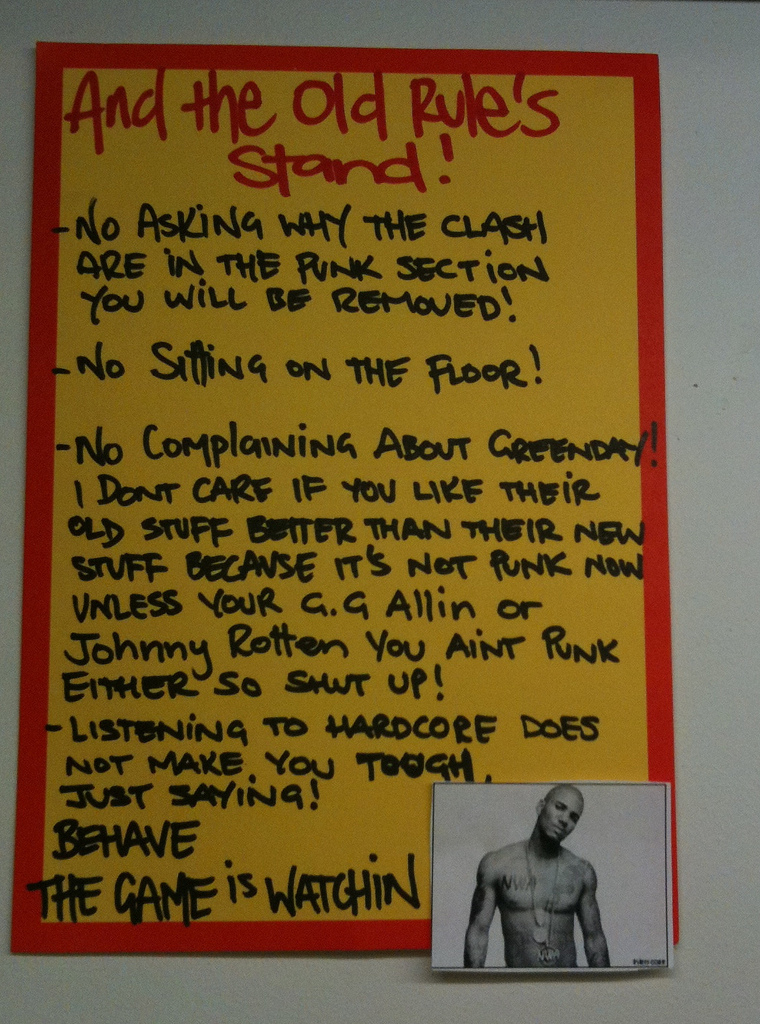 And the old Rule's
Stand!
- No ASKING WHY THE CLASH
ARE IN THE PUNK SECTION
YOU WILL BE REMOVED!
- No Sitting ON THE FLOOR!
- No Complaining About GREENDAY!
I DONT CARE IF YOU LIKE THEIR
OLD STUFF BETTER THAN THEIR NEW
STUFF BECAUSE IT'S NOT PUNK NOW
UNLESS YOUR G.G Allin or
Johnny Rotten You AINT PUNK
EITHER SO SHUT UP!
- LISTENING TO HARDCORE DOES
NOT MAKE YOU TOUGH,
JUST SAYING!
BEHAVE
THE GAME is WATCHIN
NWA